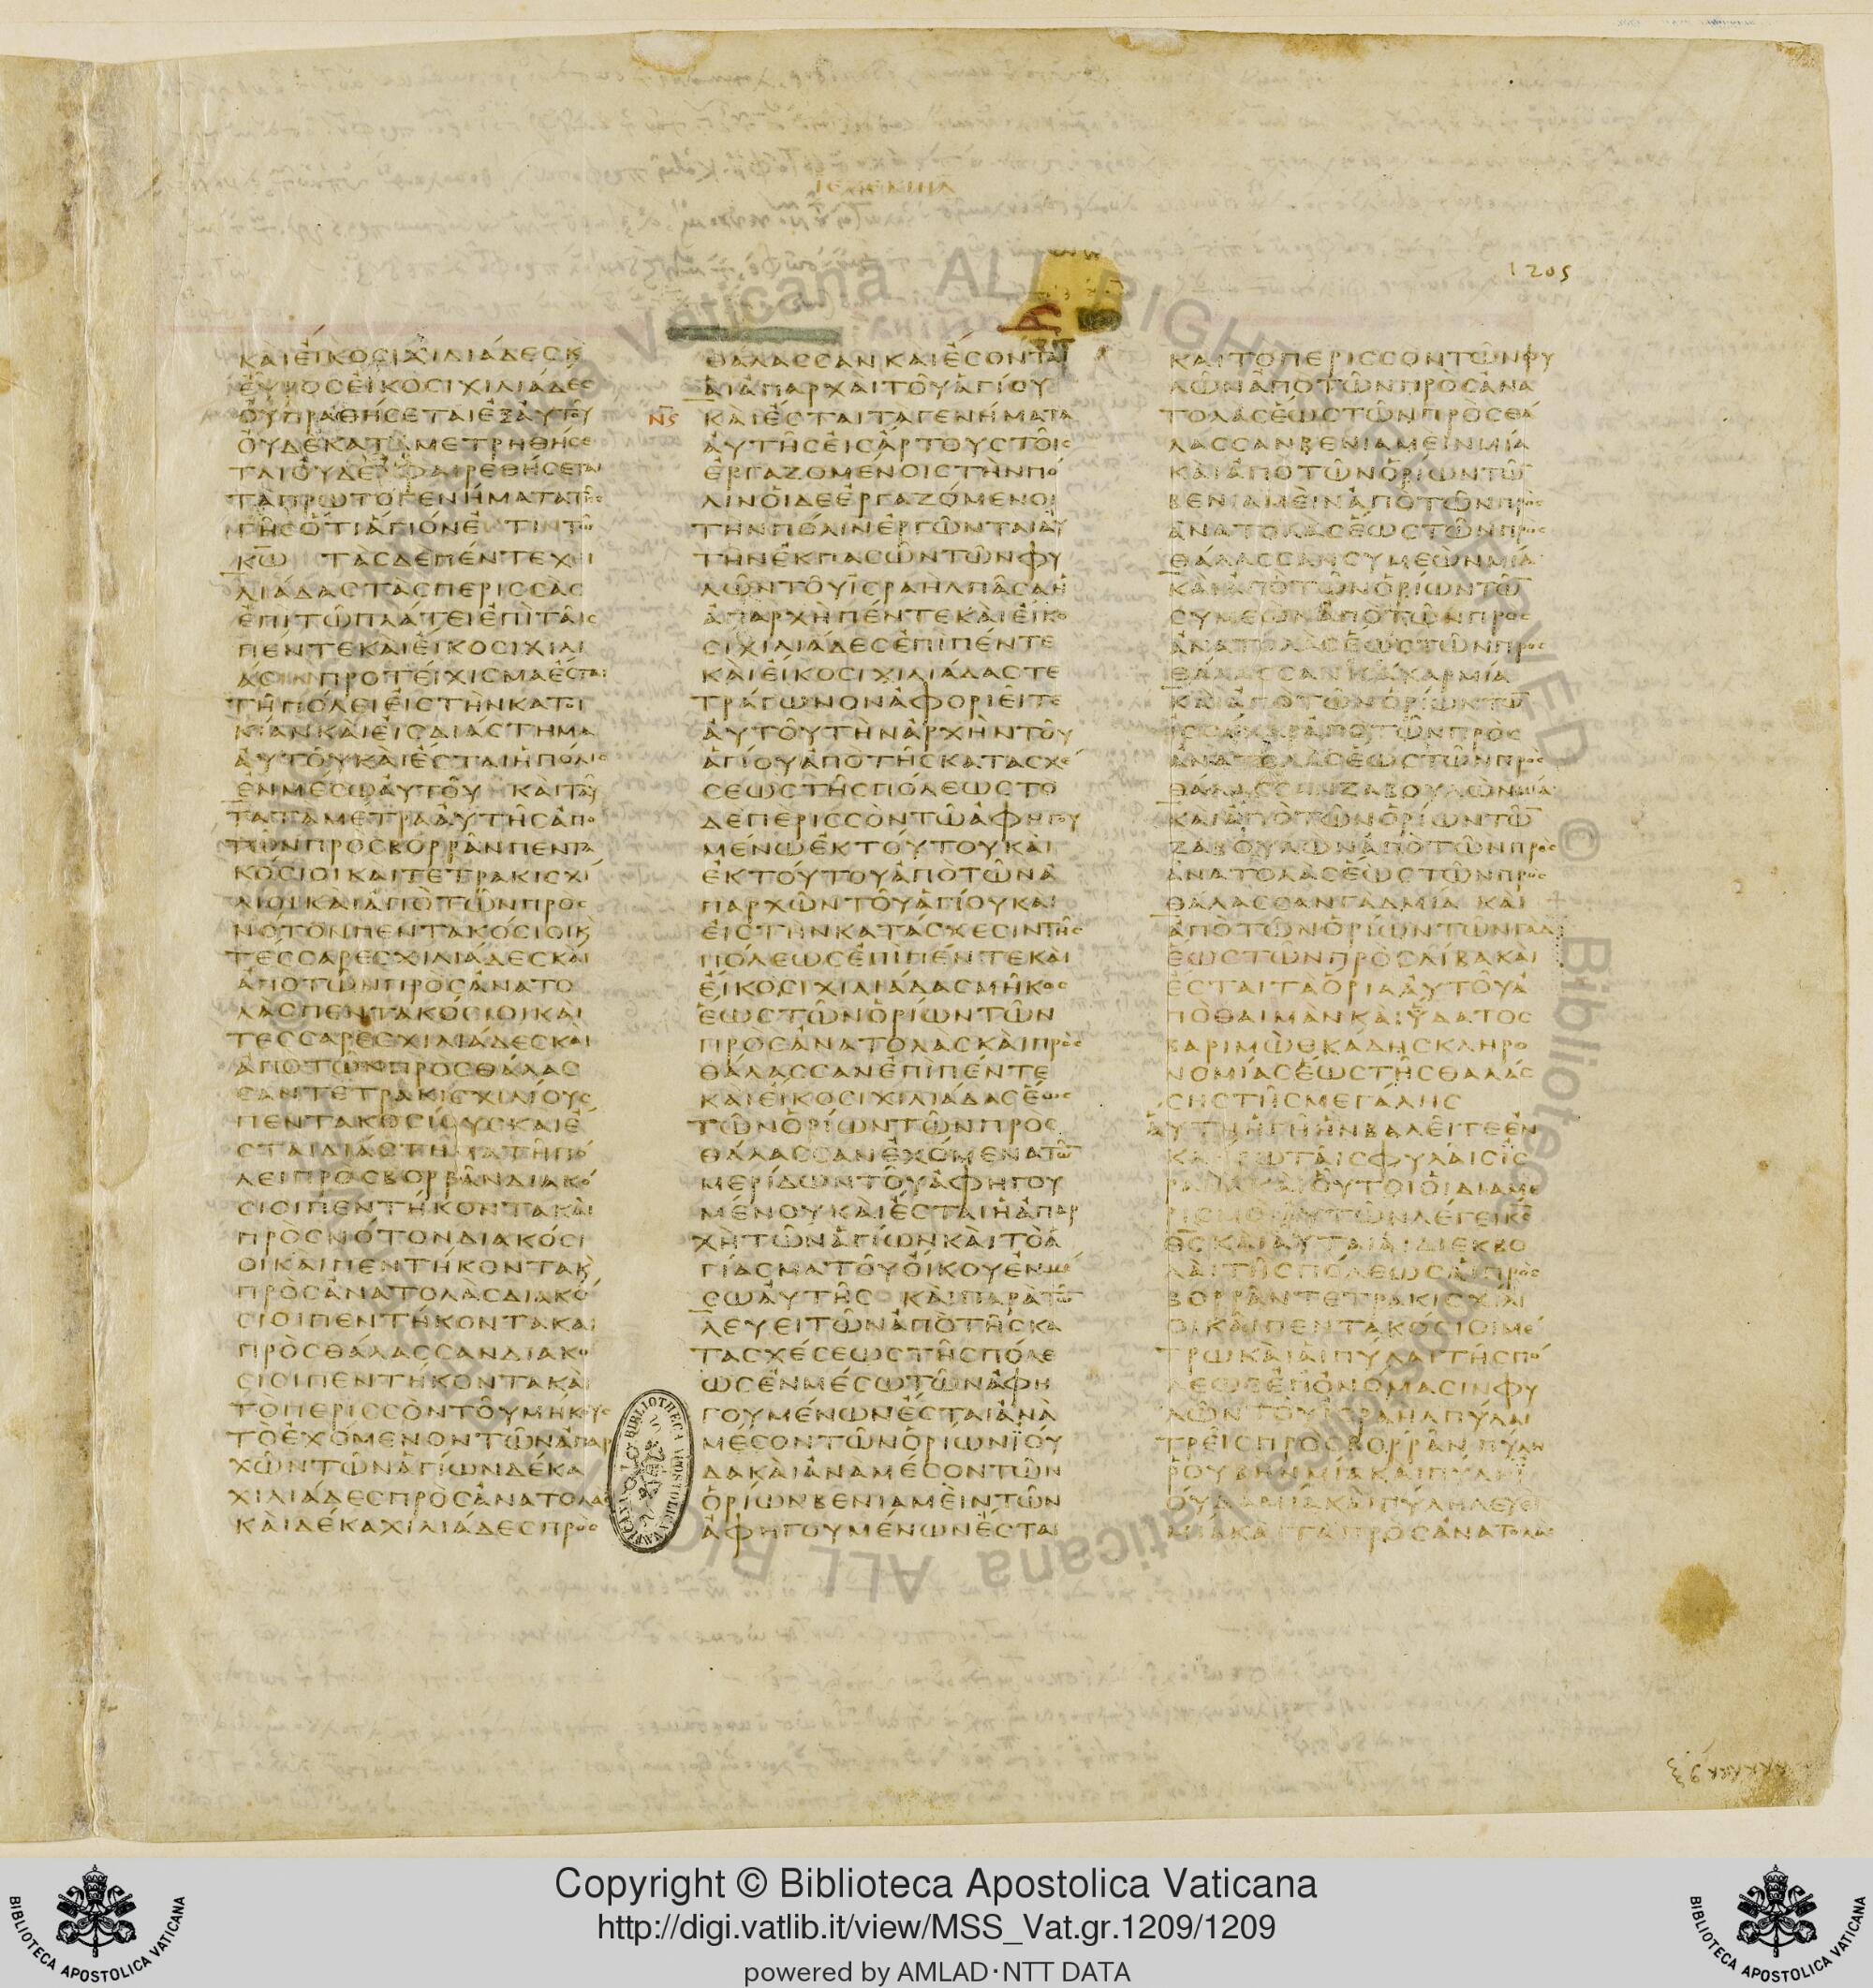 1205
ΚΑΙΕΙΚΟϹΙΧΙΛΙΑΔΕϹΚ
ΕΥΡΟϹΕΙΚΟϹΙΧΙΛΙΑΔΕϹ
ΟΥΠΡΑΘΗϹΕΤΑΙΕΞΑΥΤΟΥ
ΟΥΔΕΚΑΤΑΜΕΤΡΗΘΗϹΕ
ΤΑΙΟΥΔΕΑΦΑΙΡΕΘΗϹΕΤΑΙ
ΤΑΠΡΩΤΟΓΕΝΗΜΑΤΑΤΗϹ
ΓΗϹΟΤΙΑΓΙΟΝΕϹΤΙΝΤΩ
ΚΩ ΤΑϹΔΕΠΕΝΤΕΧΙ
ΛΙΑΔΑϹΤΑϹΠΕΡΙϹϹΑϹ
ΕΠΙΤΩΠΛΑΤΕΙΕΠΙΤΑΙϹ
ΠΕΝΤΕΚΑΙΕΙΚΟϹΙΧΙΛΙ
ΑϹΙΝΠΡΟΤΕΙΧΙϹΜΑΕϹΤΑΙ
ΤΗΠΟΛΕΙΕΙϹΤΗΝΚΑΤΟΙ
ΚΙΑΝΚΑΙΕΙϹΔΙΑϹΤΗΜΑ
ΑΥΤΟΥΚΑΙΕϹΤΑΙΗΠΟΛΙϹ
ΕΝΜΕϹΩΑΥΤΟΥ ΚΑΙΤΑΥ
ΤΑΤΑΜΕΤΡΑΑΥΤΗϹΑΠΟ
ΤΩΝΠΡΟϹΒΟΡΡΑΝΠΕΝΤΑ
ΚΟϹΙΟΙΚΑΙΤΕΤΡΑΚΙϹΧΙ
ΛΙΟΙΚΑΙΑΠΟΤΩΝΠΡΟϹ
ΝΟΤΟΝΠΕΝΤΑΚΟϹΙΟΙΚ
ΤΕϹϹΑΡΕϹΧΙΛΙΑΔΕϹΚΑΙ
ΑΠΟΤΩΝΠΡΟϹΑΝΑΤΟ
ΛΑϹΠΕΝΤΑΚΟϹΙΟΙΚΑΙ
ΤΕϹϹΑΡΕϹΧΙΛΙΑΔΕϹΚΑΙ
ΑΠΟΤΩΝΠΡΟϹΘΑΛΑϹ
ϹΑΝΤΕΤΡΑΚΙϹΧΙΛΙΟΥϹ
ΠΕΝΤΑΚΟϹΙΟΥϹΚΑΙΕ
ϹΤΑΙΔΙΑϹΤΗΜΑΤΗΠΟ
ΛΕΙΠΡΟϹΒΟΡΡΑΝΔΙΑΚΟ
ϹΙΟΙΠΕΝΤΗΚΟΝΤΑΚΑΙ
ΠΡΟϹΝΟΤΟΝΔΙΑΚΟϹΙ
ΟΙΚΑΙΠΕΝΤΗΚΟΝΤΑΚ
ΠΡΟϹΑΝΑΤΟΛΑϹΔΙΑΚΟ
ϹΙΟΙΠΕΝΤΗΚΟΝΤΑΚΑΙ
ΠΡΟϹΘΑΛΑϹϹΑΝΔΙΑΚΟ
ϹΙΟΙΠΕΝΤΗΚΟΝΤΑΚΑΙ
ΤΟΠΕΡΙϹϹΟΝΤΟΥΜΗΚΟΥϹ
ΤΟΕΧΟΜΕΝΟΝΤΩΝΑΠΑΡ
ΧΩΝΤΩΝΑΓΙΩΝΔΕΚΑ
ΧΙΛΙΑΔΕϹΠΡΟϹΑΝΑΤΟΛΑϹ
ΚΑΙΔΕΚΑΧΙΛΙΑΔΕϹΠΡΟϹ
ΘΑΛΑϹϹΑΝΚΑΙΕϹΟΝΤΑΙ
ΑΙΑΠΑΡΧΑΙΤΟΥΑΓΙΟΥ
ΝϚ ΚΑΙΕϹΤΑΙΤΑΓΕΝΗΜΑΤΑ
ΑΥΤΗϹΕΙϹΑΡΤΟΥϹΤΟΙϹ
ΕΡΓΑΖΟΜΕΝΟΙϹΤΗΝΠΟ
ΛΙΝΟΙΔΕΕΡΓΑΖΟΜΕΝΟΙ
ΤΗΝΠΟΛΙΝΕΡΓΩΝΤΑΙΑΥ
ΤΗΝΕΚΠΑϹΩΝΤΩΝΦΥ
ΛΩΝΤΟΥΙϹΡΑΗΛΠΑϹΑΗ
ΑΠΑΡΧΗΠΕΝΤΕΚΑΙΕΙΚΟ
ϹΙΧΙΛΙΑΔΕϹΕΠΙΠΕΝΤΕ
ΚΑΙΕΙΚΟϹΙΧΙΛΙΑΔΑϹΤΕ
ΤΡΑΓΩΝΟΝΑΦΟΡΙΕΙΤΕ
ΑΥΤΟΥΤΗΝΑΡΧΗΝΤΟΥ
ΑΓΙΟΥΑΠΟΤΗϹΚΑΤΑϹΧΕ
ϹΕΩϹΤΗϹΠΟΛΕΩϹΤΟ
ΔΕΠΕΡΙϹϹΟΝΤΩΑΦΗΓΟΥ
ΜΕΝΩΕΚΤΟΥΤΟΥΚΑΙ
ΕΚΤΟΥΤΟΥΑΠΟΤΩΝΑ
ΠΑΡΧΩΝΤΟΥΑΓΙΟΥΚΑΙ
ΕΙϹΤΗΝΚΑΤΑϹΧΕϹΙΝΤΗϹ
ΠΟΛΕΩϹΕΠΙΠΕΝΤΕΚΑΙ
ΕΙΚΟϹΙΧΙΛΙΑΔΑϹΜΗΚΟϹ
ΕΩϹΤΩΝΟΡΙΩΝΤΩΝ
ΠΡΟϹΑΝΑΤΟΛΑϹΚΑΙΠΡΟϹ
ΘΑΛΑϹϹΑΝΕΠΙΠΕΝΤΕ
ΚΑΙΕΙΚΟϹΙΧΙΛΙΑΔΑϹΕΩϹ
ΤΩΝΟΡΙΩΝΤΩΝΠΡΟϹ
ΘΑΛΑϹϹΑΝΕΧΟΜΕΝΑΤΩ
ΜΕΡΙΔΩΝΤΟΥΑΦΗΓΟΥ
ΜΕΝΟΥΚΑΙΕϹΤΑΙΗΑΠΑΡ
ΧΗΤΩΝΑΓΙΩΝΚΑΙΤΟΑ
ΓΙΑϹΜΑΤΟΥΟΙΚΟΥΕΝΜΕ
ϹΩΑΥΤΗϹ ΚΑΙΠΑΡΑΤΩ
ΛΕΥΕΙΤΩΝΑΠΟΤΗϹΚΑ
ΤΑϹΧΕϹΕΩϹΤΗϹΠΟΛΕ
ΩϹΕΝΜΕϹΩΤΩΝΑΦΗ
ΓΟΥΜΕΝΩΝΕϹΤΑΙΑΝΑ
ΜΕϹΟΝΤΩΝΟΡΙΩΝΙΟΥ
ΔΑΚΑΙΑΝΑΜΕϹΟΝΤΩΝ
ΟΡΙΩΝΒΕΝΙΑΜΕΙΝΤΩΝ
ΑΦΗΓΟΥΜΕΝΩΝΕϹΤΑΙ
ΚΑΙΤΟΠΕΡΙϹϹΟΝΤΩΝΦΥ
ΛΩΝΑΠΟΤΩΝΠΡΟϹΑΝΑ
ΤΟΛΑϹΕΩϹΤΩΝΠΡΟϹΘΑ
ΛΑϹϹΑΝΒΕΝΙΑΜΕΙΝΜΙΑ
ΚΑΙΑΠΟΤΩΝΟΡΙΩΝΤΩ
ΒΕΝΙΑΜΕΙΝΑΠΟΤΩΝΠΡΟϹ
ΑΝΑΤΟΛΑϹΕΩϹΤΩΝΠΡΟϹ
ΘΑΛΑϹϹΑΝϹΥΜΕΩΝΜΙΑ
ΚΑΙΑΠΟΤΩΝΟΡΙΩΝΤΩ
ϹΥΜΕΩΝΑΠΟΤΩΝΠΡΟϹ
ΑΝΑΤΟΛΑϹΕΩϹΤΩΝΠΡΟϹ
ΘΑΛΑϹϹΑΝΙϹΑΧΑΡΜΙΑ
ΚΑΙΑΠΟΤΩΝΟΡΙΩΝΤΩ
ΙϹϹΑΧΑΡΑΠΟΤΩΝΠΡΟϹ
ΑΝΑΤΟΛΑϹΕΩϹΤΩΝΠΡΟϹ
ΘΑΛΑϹϹΑΝΖΑΒΟΥΛΩΝΜΙΑ
ΚΑΙΑΠΟΤΩΝΟΡΙΩΝΤΩ
ΖΑΒΟΥΛΩΝΑΠΟΤΩΝΠΡΟϹ
ΑΝΑΤΟΛΑϹΕΩϹΤΩΝΠΡΟϹ
ΘΑΛΑϹϹΑΝΓΑΔΜΙΑ ΚΑΙ
ΑΠΟΤΩΝΟΡΙΩΝΤΩΝΓΑΔ
ΕΩϹΤΩΝΠΡΟϹΛΙΒΑΚΑΙ
ΕϹΤΑΙΤΑΟΡΙΑΑΥΤΟΥΑ
ΠΟΘΑΙΜΑΝΚΑΙΥΔΑΤΟϹ
ΒΑΡΙΜΩΘΚΑΔΗϹΚΛΗΡΟ
ΝΟΜΙΑϹΕΩϹΤΗϹΘΑΛΑϹ
ϹΗϹΤΗϹΜΕΓΑΛΗϹ
ΑΥΤΗΗΓΗΗΝΒΑΛΕΙΤΕΕΝ
ΚΛΗΡΩΤΑΙϹΦΥΛΑΙϹΙϹ
ΡΑΗΛΚΑΙΟΥΤΟΙΟΙΔΙΑΜΕ
ΡΙϹΜΟΙΑΥΤΩΝΛΕΓΕΙΚϹ
ΘϹΚΑΙΑΥΤΑΙΑΙΔΙΕΚΒΟ
ΛΑΙΤΗϹΠΟΛΕΩϹΑΙΠΡΟϹ
ΒΟΡΡΑΝΤΕΤΡΑΚΙϹΧΙΛΙ
ΟΙΚΑΙΠΕΝΤΑΚΟϹΙΟΙΜΕ
ΤΡΩΚΑΙΑΙΠΥΛΑΙΤΗϹΠΟ
ΛΕΩϹΕΠΟΝΟΜΑϹΙΝΦΥ
ΛΩΝΤΟΥΙϹΡΑΗΛΠΥΛΑΙ
ΤΡΕΙϹΠΡΟϹΒΟΡΡΑΝΠΥΛΗ
ΡΟΥΒΗΝΜΙΑΚΑΙΠΥΛΗΙ
ΟΥΔΑΜΙΑΚΑΙΠΥΛΗΛΕΥΕΙ
ΜΙΑΚΑΙΤΑΠΡΟϹΑΝΑΤΟΛΑϹ
Copyright © Biblioteca Apostolica Vaticana
http://digi.vatlib.it/view/MSS_Vat.gr.1209/1209
powered by AMLAD·NTT DATA
BIBLIOTECA APOSTOLICA VATICANA
BIBLIOTECA APOSTOLICA VATICANA